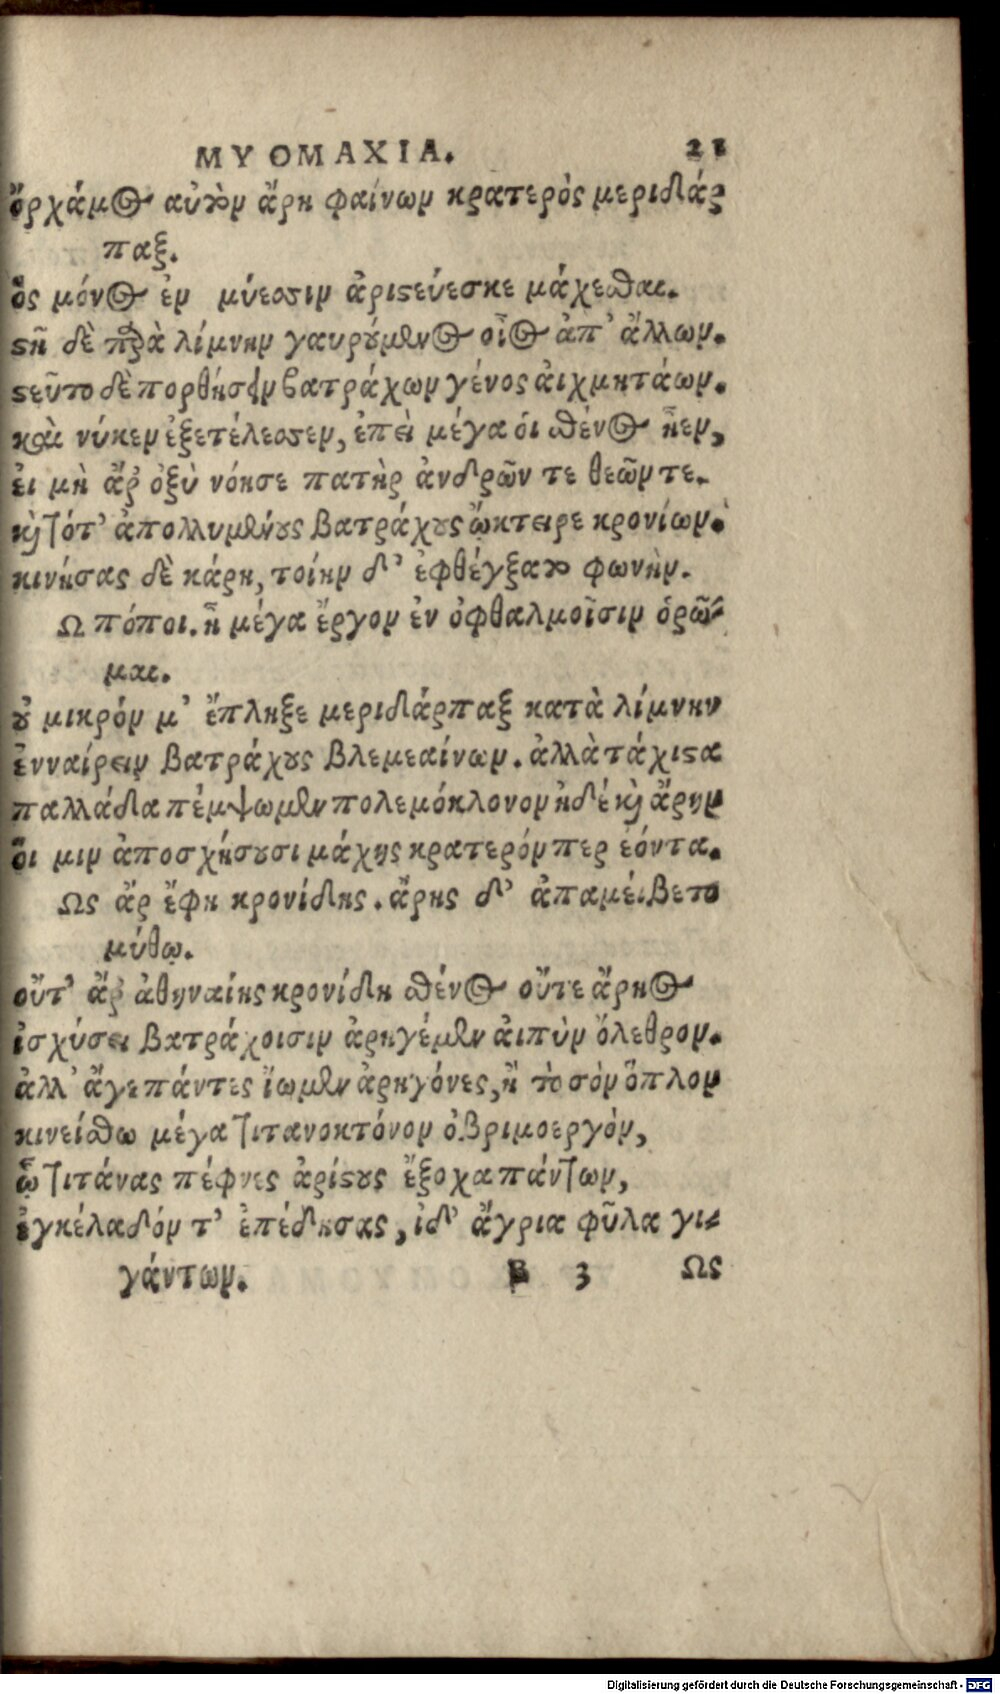 ΜΥΟΜΑΧΙΑ. 21
ὄρχάμος αὐτὸν ἄρη φαίνων κρατερὸς μεριδάρ
παξ.
ὃς μόνος ἐν μύεσσιν ἀριστεύεσκε μάχεσθαι.
στῆ δὲ παρὰ λίμνην γαυρούμενος οἶος ἀπ' ἄλλων.
στεῦτο δὲ πορθήσειν βατράχων γένος αἰχμητάων.
καὶ νύκεν ἐξετέλεσσεν, ἐπεὶ μέγα ὁι σθένος ἦεν,
ἐι μὴ ἄρ ὀξὺ νόησε πατὴρ ἀνδρῶν τε θεῶν τε.
καὶ τότ' ἀπολλυμένους βατράχους ᾤκτειρε κρονίων.
κινήσας δὲ κάρη, τοίην δ' ἐφθέγξατο φωνὴν.
Ω πόποι. ἦ μέγα ἔργον ἐν ὀφθαλμοῖσιν ὁρῶ-
μαι.
οὐ μικρόν μ' ἔπληξε μεριδάρπαξ κατὰ λίμνην
ἐνναίρειν βατράχους βλεμεαίνων. ἀλλὰ τάχιστα
παλλάδα πέμψωμεν πολεμόκλονον ἠδέ καὶ ἄρην
ὅι μιν ἀποσχήσουσι μάχης κρατερόν περ ἐόντα.
Ως ἄρ ἔφη κρονίδης. ἄρης δ' ἀπαμείβετο
μύθῳ.
οὔτ' ἄρ ἀθηναίης κρονίδη σθένος οὔτε ἄρηος
ἰσχύσει βατράχοισιν ἀρηγέμεν ἀιπὺν ὄλεθρον.
ἀλλ' ἄγε πάντες ἴωμεν ἀρηγόνες, ἢ τὸ σὸν ὅπλον
κινείσθω μέγα τιτανοκτόνον ὀβριμοεργὸν,
ᾧ τιτάνας πέφνες ἀρίστους ἔξοχα πάντων,
ἐγκέλαδόν τ' ἐπέδησας, ἰδ' ἄγρια φῦλα γι-
γάντων. B 3 Ως
Digitalisierung gefördert durch die Deutsche Forschungsgemeinschaft - DFG